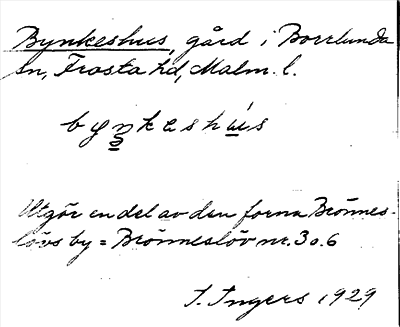 Bynkeshus, gård i Borrlunda
sn, Frosta hd, Malm. l.
byŋkeshus
Utgör en del av den forna Brönnes-
lövs by = Brönneslöv nr. 3 o. 6
I. Ingers 1929